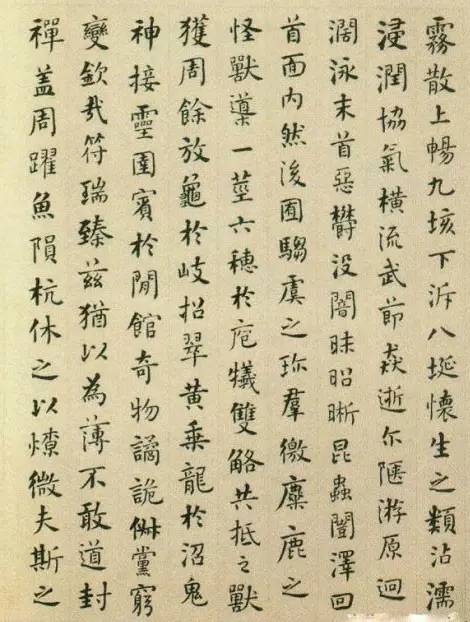 霧散上暢九垓下泝八埏懷生之類沾濡
浸潤協氣橫流武節焱逝尓陿游原迥
濶泳末首惡欝没闇昧昭晰昆蟲闓澤回
首面内然後囿騶虞之珎羣徼麋鹿之
怪獸導一莖六穗於庖犧雙觡共抵之獸
獲周餘放龜於岐招翠黄乗龍於沼鬼
神接靈圉賓於閒館奇物譎詭俶黨窮
變欽哉符瑞臻兹猶以為薄不敢道封
禪盖周躍魚隕杭休之以燎微夫斯之